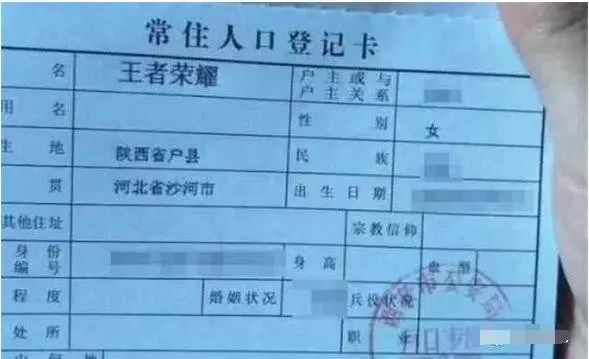 常住人口登记卡
名 王者荣耀 户主或与户主关系
用名 性别 女
生地 陕西省户县 民族
贯 河北省沙河市 出生日期
其他住址 宗教信仰
身份编号 身高 血型
程度 婚姻状况 兵役状况
处所 职业